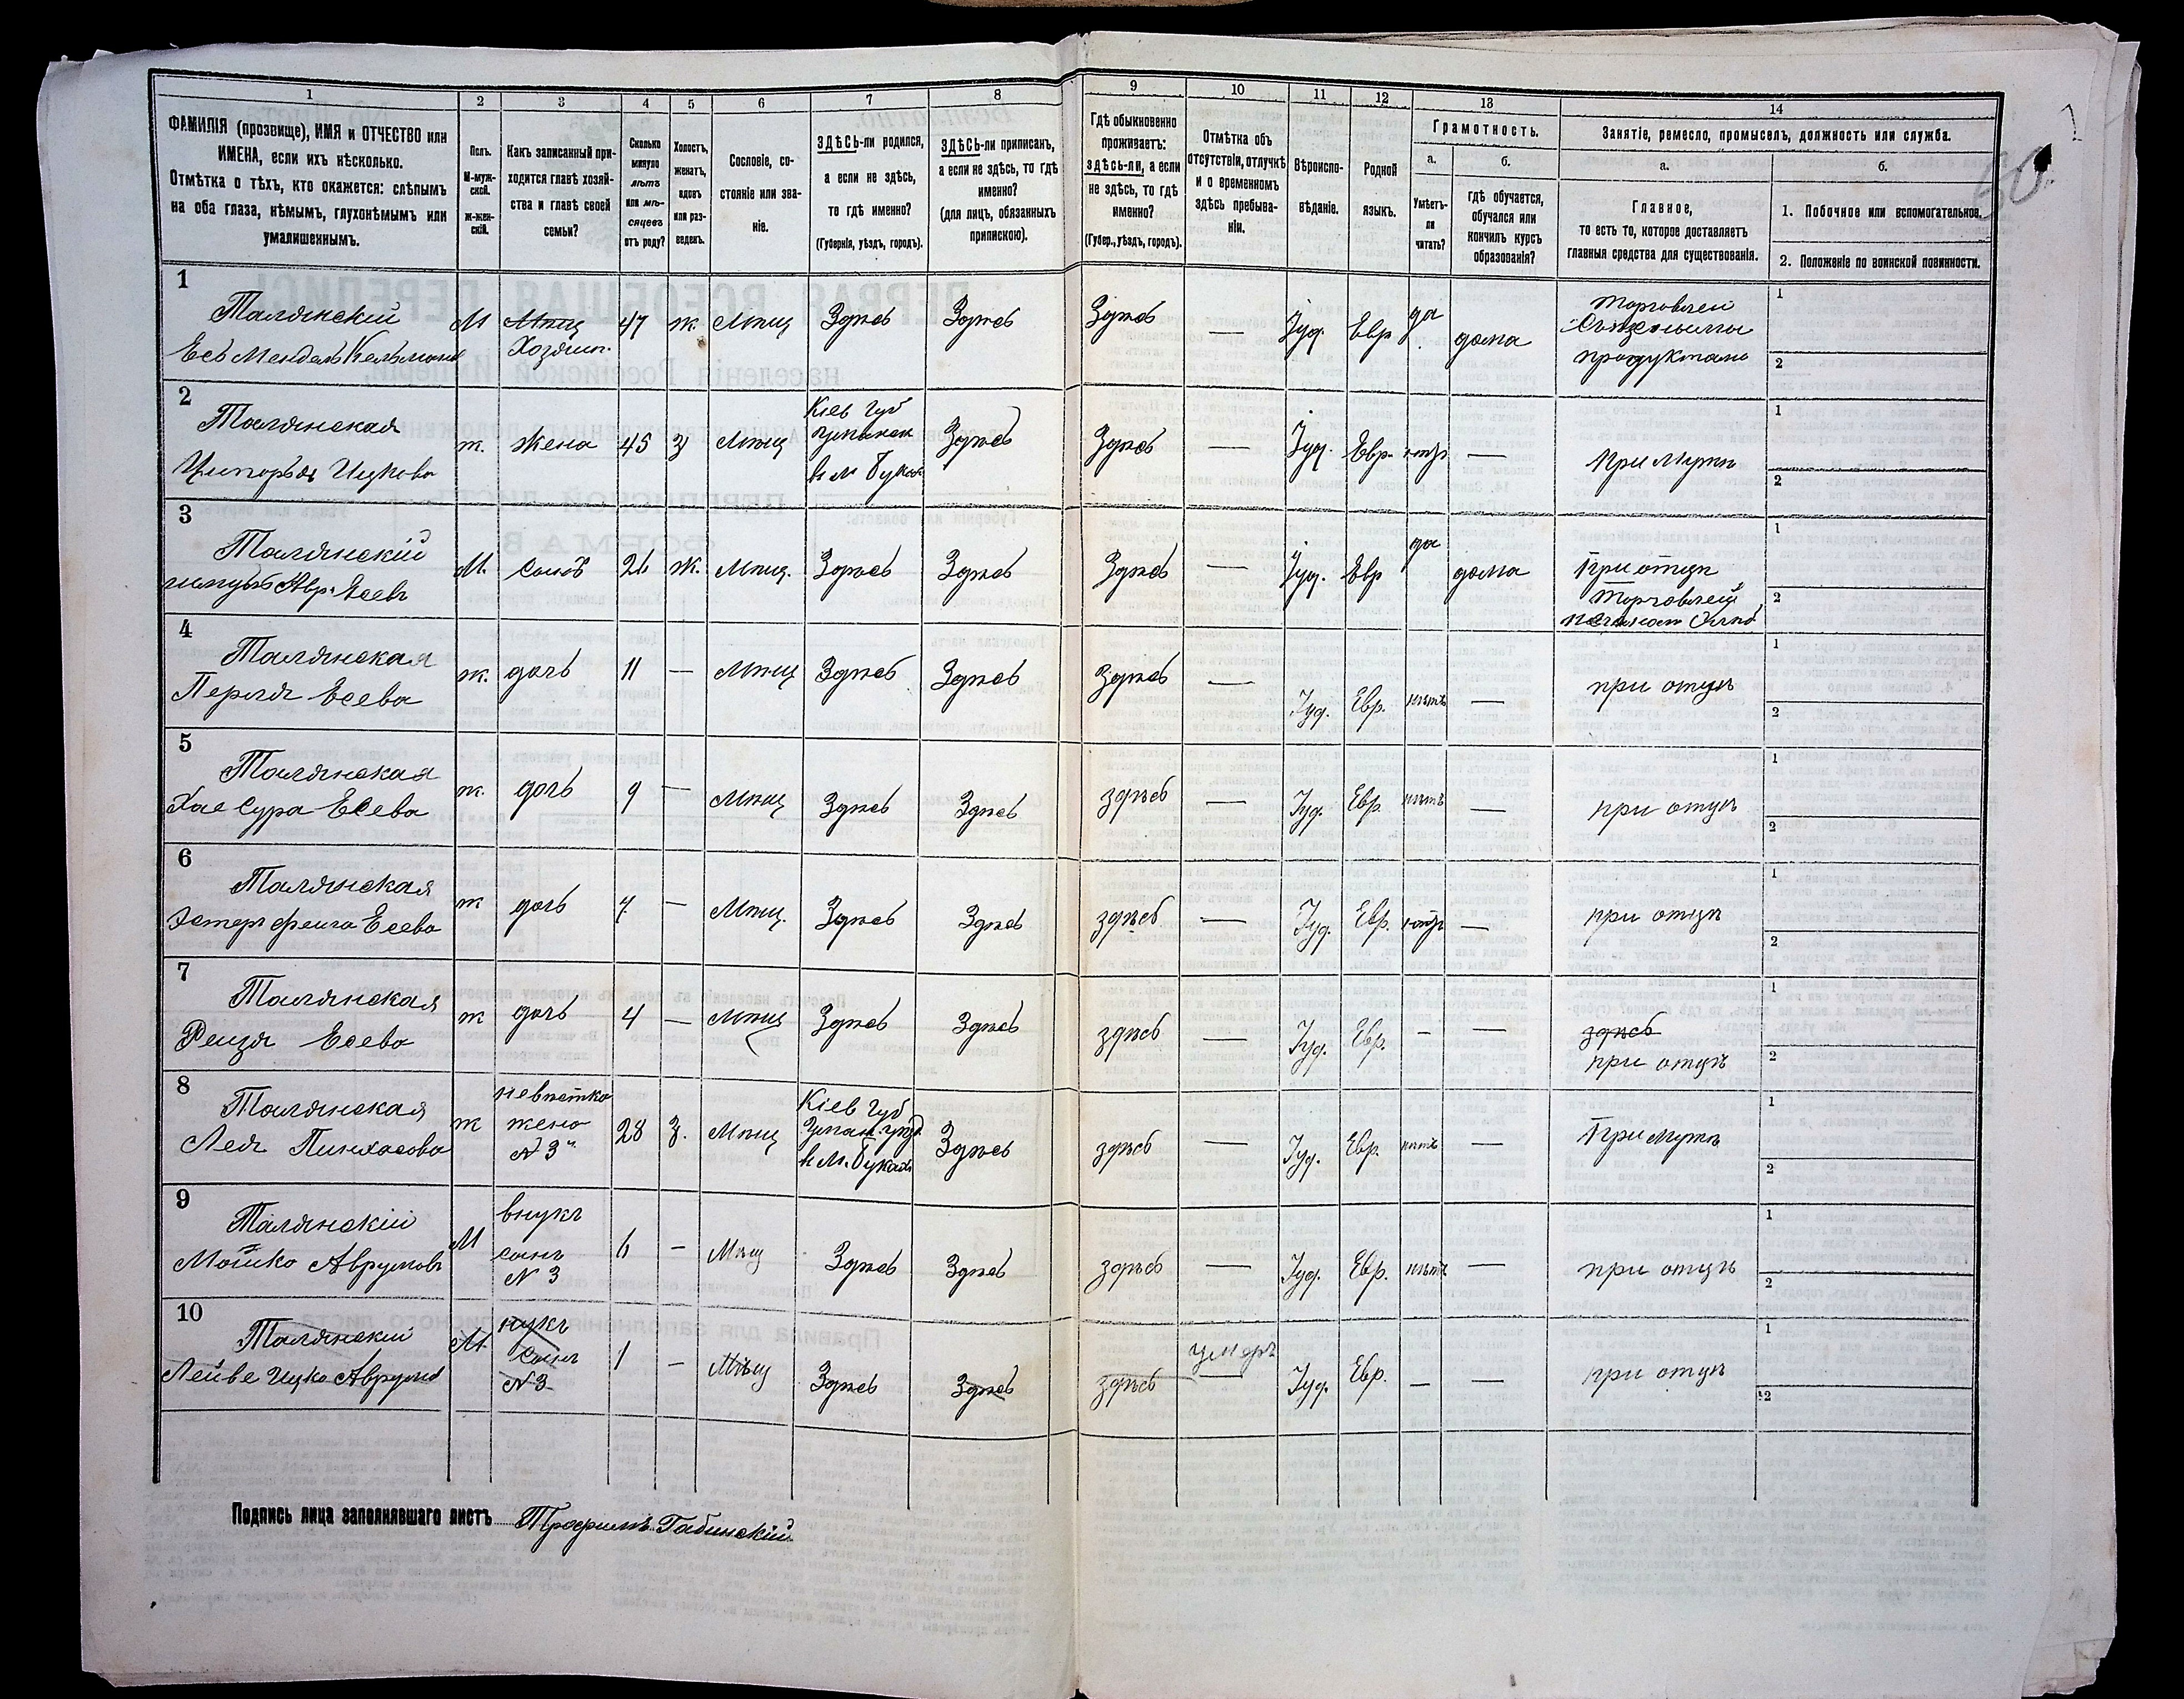 1 2 3 4 5 6 7 8 9 10 11 12 13 14
ФАМИЛІЯ (прозвище), ИМЯ и ОТЧЕСТВО или
ИМЕНА, если ихъ нѣсколько.
Отмѣтка о тѣхъ, кто окажется: слѣпымъ
на оба глаза, нѣмымъ, глухонѣмымъ или
умалишеннымъ.
Полъ.
М-муж-
ской.
Ж-жен-
скій.
Какъ записанный при-
ходится главѣ хозяй-
ства и главѣ своей
семьи?
Сколько
минуло
лѣтъ
или мѣ-
сяцевъ
отъ роду?
Холостъ,
женатъ,
вдовъ
или раз-
веденъ.
Сословіе, со-
стояніе или зва-
ніе.
ЗДѢСЬ-ли родился,
а если не здѣсь,
то гдѣ именно?
(Губернія, уѣздъ, городъ).
ЗДѢСЬ-ли приписанъ,
а если не здѣсь, то гдѣ
именно?
(для лицъ, обязанныхъ
припискою).
Гдѣ обыкновенно
проживаетъ:
здѣсь-ли, а если
не здѣсь, то гдѣ
именно?
(Губер., уѣздъ, городъ).
Отмѣтка объ
отсутствіи, отлучкѣ
и о временномъ
здѣсь пребыва-
ніи.
Вѣроиспо-
вѣданіе.
Родной
языкъ.
Грамотность.
а.
Умѣетъ-
ли
читать?
б.
гдѣ обучается,
обучался или
кончилъ курсъ
образованія?
Занятіе, ремесло, промыселъ, должность или служба.
а.
Главное,
то есть то, которое доставляетъ
главныя средства для существованія.
б.
1. Побочное или вспомогательное.
2. Положеніе по воинской повинности.
50.
1
Талянскій
Есь Мендель Кельманов
М
Мѣщ
Хозяин
47 ж. Мѣщ Здѣсь Здѣсь Здѣсь — Іуд. Евр да дома
Торговлей
Съѣзсными
продуктами
1
2
2
Талянская
Ицкова
ж. Жена 45 З Мѣщ
Кіев Губ
в м Буках
Здѣсь Здѣсь — Іуд. Евр. нѣт — При Мужѣ
1
2
3
Талянскій
Авр. Есевъ
М. Сынъ 26 Ж. Мѣщ. Здѣсь Здѣсь Здѣсь — Іуд. Евр да дома
При отцѣ
Торговлей
1
2
4
Талянская
Перля Есева
ж. дочь 11 — Мѣщ Здѣсь Здѣсь Здѣсь — Іуд. Евр. нѣтъ — при отцѣ
1
2
5
Талянская
Хае Сура Есева
ж. дочь 9 — Мѣщ Здѣсь Здѣсь здѣсь — Іуд. Евр. нѣтъ — при отцѣ
1
2
6
Талянская
Эстер Фейга Есева
ж дочь 7. — Мѣщ. Здѣсь Здѣсь здѣсь — Іуд. Евр. нѣт — при отцѣ
1
2
7
Талянская
Рейзя Есева
ж дочь 4 — Мѣщ Здѣсь Здѣсь здѣсь — Іуд. Евр. - —
здѣсь
при отцѣ
1
2
8
Талянская
Лея Пинхасова
ж
невѣстка
жена
№ 3
28 З. Мѣщ
Кіев Губ
Уман. уѣзд
в М. Буках
Здѣсь здѣсь — Іуд. Евр. нѣтъ — При Мужѣ
1
2
9
Талянскій
Мошко Аврумовъ
М
внукъ
сынъ
№ 3
6 — Мѣщ Здѣсь Здѣсь здѣсь — Іуд. Евр. нѣтъ — при отцѣ
1
2
10
Талянскій
Лейве Ицко Аврумов
М.
нукъ
сынъ
№3
1 — Мѣщ Здѣсь Здѣсь здѣсь умеръ — Іуд. Евр. — — при отцѣ
1
2
Подпись лица заполнявшаго листъ Трофимъ Габинскій